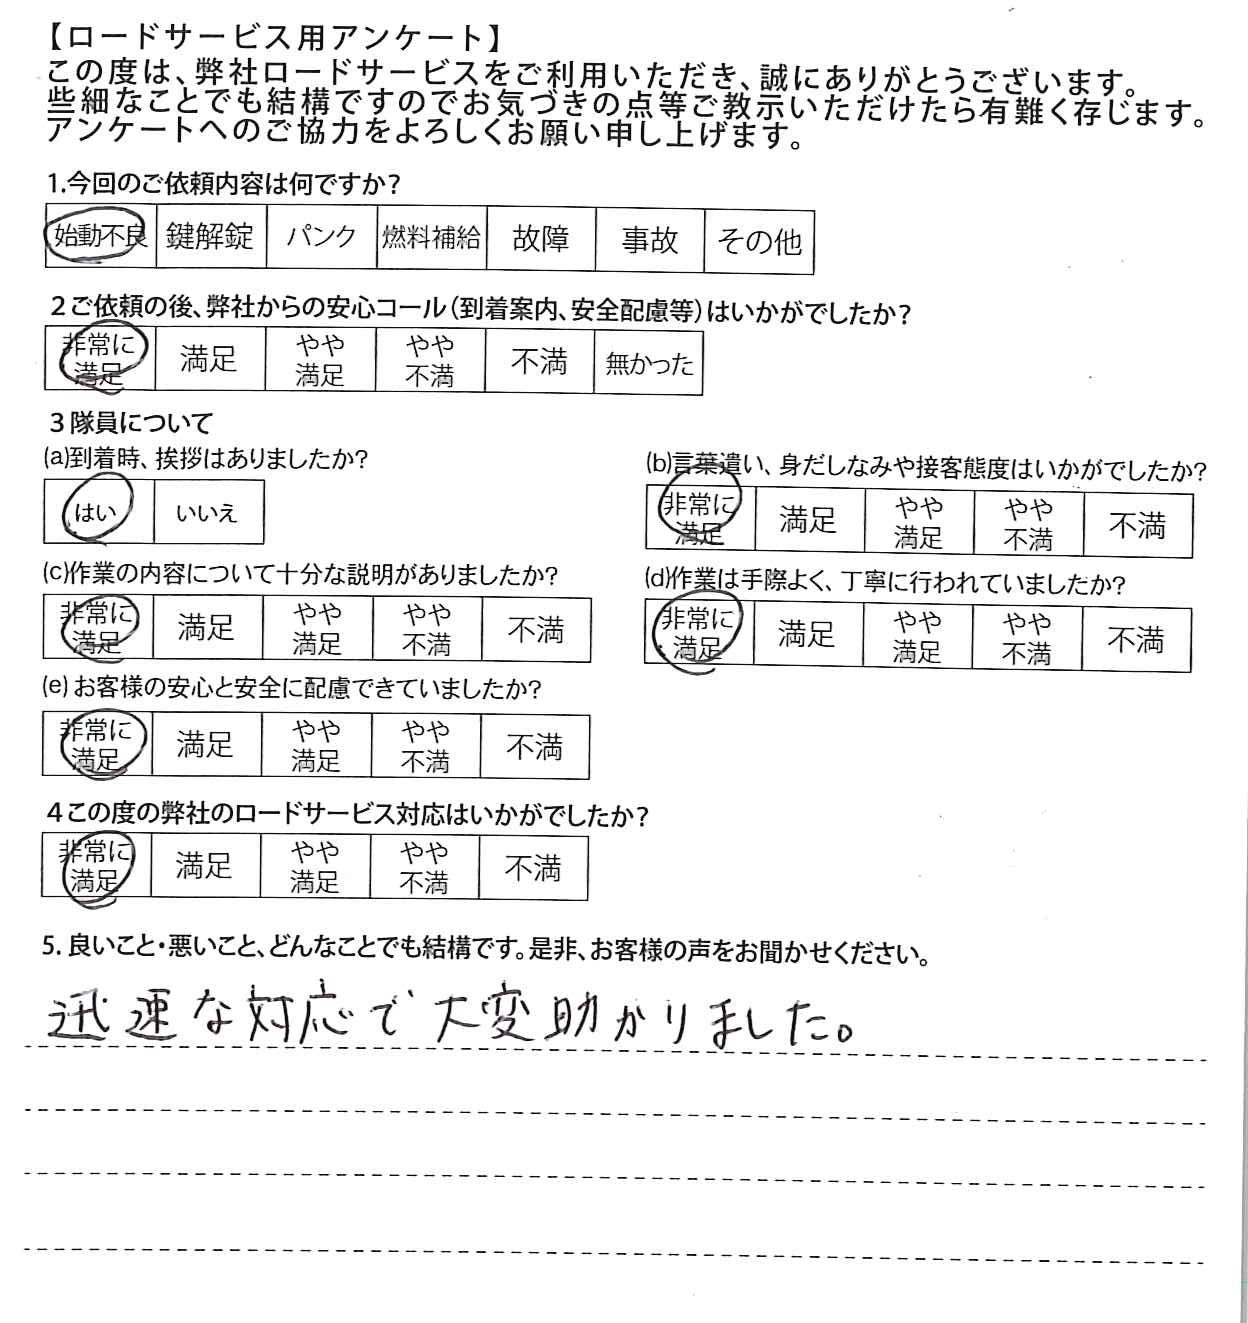 【ロードサービス用アンケート】
この度は、弊社ロードサービスをご利用いただき、誠にありがとうございます。
些細なことでも結構ですのでお気づきの点等ご教示いただけたら有難く存じます。
アンケートへのご協力をよろしくお願い申し上げます。
1.今回のご依頼内容は何ですか?
始動不良 鍵解錠 パンク 燃料補給 故障 事故 その他
2ご依頼の後、弊社からの安心コール(到着案内、安全配慮等)はいかがでしたか?
非常に満足 満足 やや満足 やや不満 不満 無かった
3隊員について
(a)到着時、挨拶はありましたか?
はい いいえ
(b)言葉遣い、身だしなみや接客態度はいかがでしたか?
非常に満足 満足 やや満足 やや不満 不満
(c)作業の内容について十分な説明がありましたか?
非常に満足 満足 やや満足 やや不満 不満
(d)作業は手際よく、丁寧に行われていましたか?
非常に満足 満足 やや満足 やや不満 不満
(e)お客様の安心と安全に配慮できていましたか?
非常に満足 満足 やや満足 やや不満 不満
4この度の弊社のロードサービス対応はいかがでしたか?
非常に満足 満足 やや満足 やや不満 不満
5.良いこと・悪いこと、どんなことでも結構です。是非、お客様の声をお聞かせください。
迅速な対応で大変助かりました。